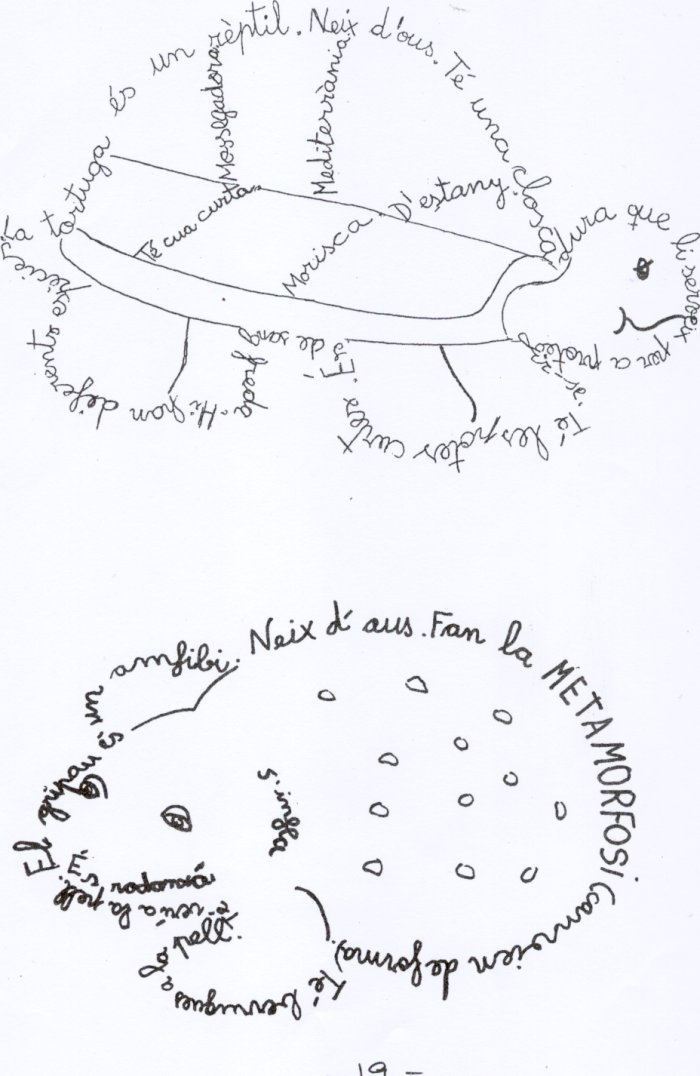 La tortuga és un rèptil. Neix d'ous. Té una closca dura que li serveix per a protegir-se.
Té les potes curtes. És de sang freda. Hi han diferents espècies.
Mossegadora
Mediterrània
Té cua curta
Morisca
D'estany
El gripau és un amfibi. Neix d'ous. Fan la METAMORFOSI (canvien de forma). Té berrugues a la pell.
verí a la pell. És
s'infla
19 -